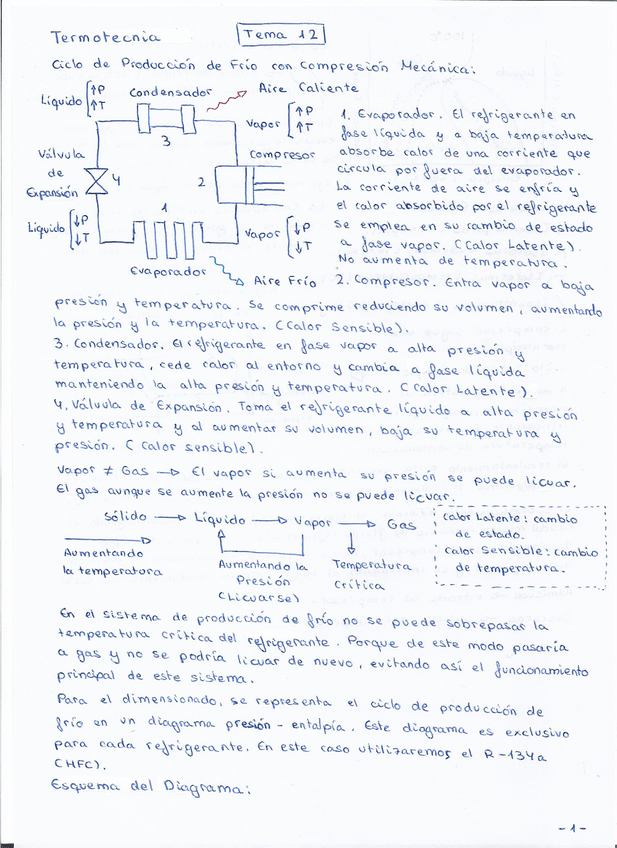 Termotecnia
Tema 12
Ciclo de Producción de Frío con Compresión Mecánica:
Líquido
↑P
↑T
Condensador
Aire Caliente
3
Vapor
↑P
↑T
Válvula
de
Expansión
4
2
Compresor
1
Líquido
↓P
↓T
Vapor
↓P
↓T
Evaporador
Aire Frío
1. Evaporador. El refrigerante en
fase líquida y a baja temperatura
absorbe calor de una corriente que
circula por fuera del evaporador.
La corriente de aire se enfría y
el calor absorbido por el refrigerante
se emplea en su cambio de estado
a fase vapor. (Calor Latente).
No aumenta de temperatura.
2. Compresor. Entra vapor a baja
presión y temperatura. Se comprime reduciendo su volumen, aumentando
la presión y la temperatura. (Calor Sensible).
3. Condensador. El refrigerante en fase vapor a alta presión y
temperatura, cede calor al entorno y cambia a fase líquida
manteniendo la alta presión y temperatura. (Calor Latente).
4. Válvula de Expansión. Toma el refrigerante líquido a alta presión
y temperatura y al aumentar su volumen, baja su temperatura y
presión. (Calor sensible).
Vapor ≠ Gas → El vapor si aumenta su presión se puede licuar.
El gas aunque se aumente la presión no se puede licuar.
Sólido → Líquido → Vapor → Gas
Aumentando
la temperatura
Aumentando la
Presión
(Licuarse)
Temperatura
Crítica
Calor Latente: cambio
de estado.
Calor Sensible: cambio
de temperatura.
En el sistema de producción de frío no se puede sobrepasar la
temperatura crítica del refrigerante. Porque de este modo pasaría
a gas y no se podría licuar de nuevo, evitando así el funcionamiento
principal de este sistema.
Para el dimensionado, se representa el ciclo de producción de
frío en un diagrama presión - entalpía. Este diagrama es exclusivo
para cada refrigerante. En este caso utilizaremos el R-134a
(HFC).
Esquema del Diagrama:
-1-